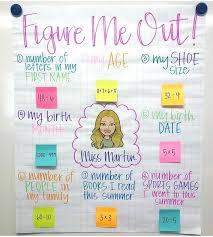 Figure Me Out!
number of
letters in my
FIRST NAME
my AGE
my SHOE
size
32÷4
my birth
MONTH
Miss Martin
my birth
DATE
5x5
number of
PEOPLE in
my family
number of
BOOKS I read
this summer
number of
SPORTS GAMES
went to this
summer
3x3
20÷5